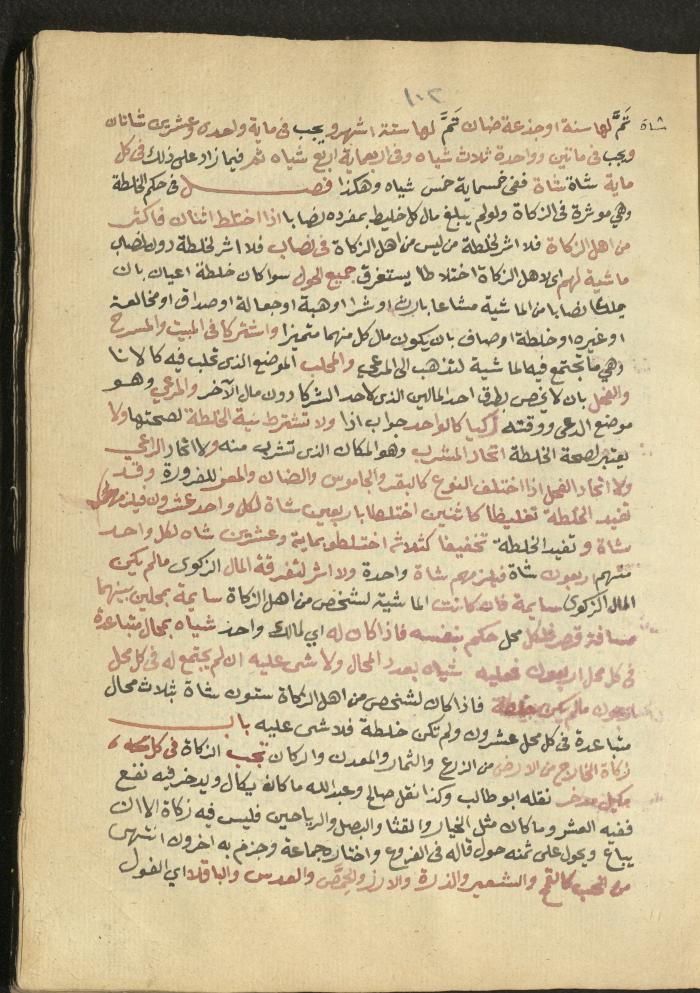 ١٠٢
شاة
تَمَّ لها سنة او جذعة ضان تَمَّ لها ستة اشهر ويجب فى ماية واحدى وعشرين شاتان
ويجب فى ماتين وواحدة ثلاث شياه وفى اربعماية اربع شياه ثم فيما زاد على ذلك فى كل
ماية شاة شاة ففى خمسماية خمس شياه وهكذا فصل فى حكم الخلطة
وهي موثرة فى الزكاة ولو لم يبلغ مال كل خليط بمفرده نصابا اذا اختلط اثنان فاكثر
من اهل الزكاة فلا اثر لخلطة من ليس من اهل الزكاة فى نصاب فلا اثر لخلطة دون نصاب
ماشية لهم اى لاهل الزكاة اختلاطا يستغرق جميع الحول سوا كان خلطة اعيان بان
يملكا نصابا من الماشية مشاعا بارث او شرا او هبة او جعالة او صداق او مخالعة
او غيره او خلطة اوصاف بان يكون مال كل منهما متميزا واشتركا فى المبيت والمسرح
وهي ما تجتمع فيه الماشية لتذهب الى المرعي والمحلب الموضع الذى تحلب فيه كالانا
والفحل بان لا يخص بطرق احد المالين الذى لاحد الشركا دون مال الآخر والمرعي وهو
موضع الرعى ووقته زكيا كالواحد جواب اذا ولا تشترط نية الخلطة لصحتها ولا
يعتبر لصحة الخلطة اتحاد المشرب وهو المكان الذى تشرب منه ولا اتحاد الراعي
ولا اتحاد الفحل اذا اختلف النوع كالبقر والجاموس والضان والمعز للضرورة وقد
تفيد الخلطة تغليظا كاثنين اختلطا باربعين شاة لكل واحد عشرون فيلزمهما
شاة وتفيد الخلطة تخفيفا كثلاثة اختلطو بماية وعشرين شاه لكل واحد
منهم اربعون شاة فيلزمهم شاة واحدة ولا اثر لتفرقة المال الزكوى مالم يكن
المال الزكوى سايمة فان كانت الماشية لشخص من اهل الزكاة سايمة بمحلين بينهما
مسافة قصر فلكل محل حكم بنفسه فاذا كان له اي لمالك واحد شياه بمحال متباعدة
فى كل محل اربعون فعليه شياه بعدد المحال ولا شى عليه ان لم يجتمع له فى كل محل
اربعون مالم يكن خلطة فاذا كان لشخص من اهل الزكاة ستون شاة بثلاث محال
متباعدة فى كل محل عشرون ولم تكن خلطة فلا شى عليه باب
زكاة الخارج من الارض من الزرع والثمار والمعدن والركاز تجب الزكاة فى كل
مكيل مدخر نقله ابو طالب وكذا نقل صالح وعبد الله ما كان يكال ويدخر فيه نفع
ففيه العشر وما كان مثل الخيار والقثا والبصل والرياحين فليس فيه زكاة الا ان
يباع ويحول على ثمنه حول قاله فى الفروع واختاره جماعة وجزم به اخرون انتهى
من الحب كالقمح والشعير والذرة والارز والحِمَّص والعدس والباقلا اي الفول